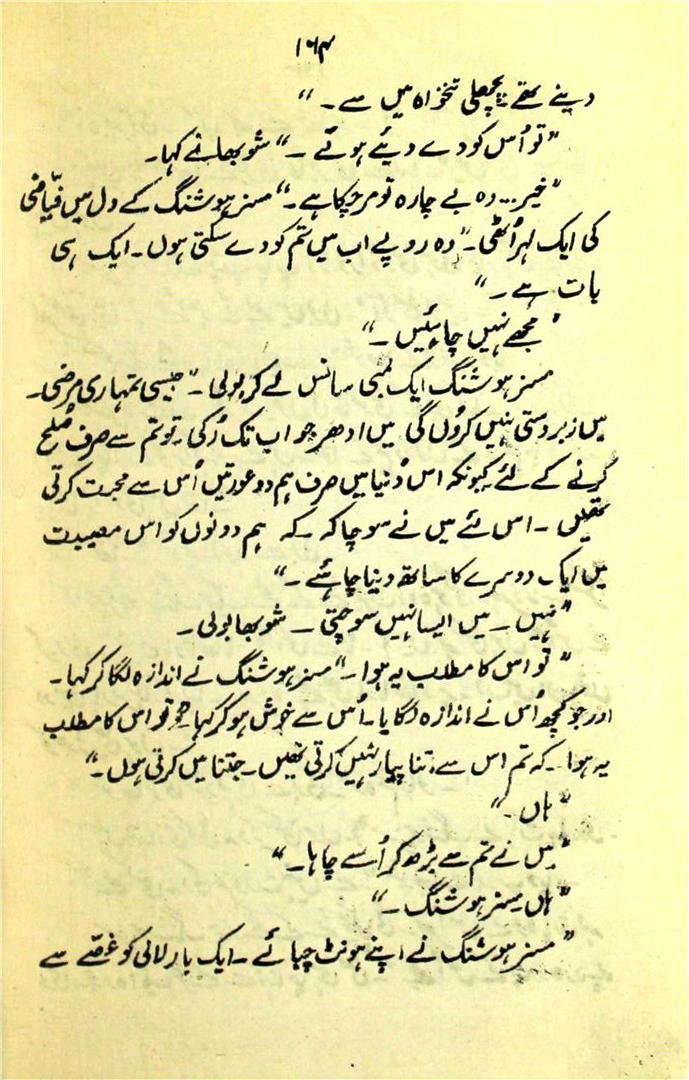 ۱۶۴
دینے تھے پچھلی تنخواہ میں سے ۔ “
”تو اُس کو دے دیئے ہوتے ۔“ شوبھا نے کہا۔
”خیر... وہ بے چارہ تو مر چکا ہے ۔“ مسز ہوشنگ کے دل میں فیّاضی
کی ایک لہر اُٹھی ۔ ”وہ روپے اب میں تم کو دے سکتی ہوں ۔ ایک ہی
بات ہے ۔ “
”مجھے نہیں چاہئیں ۔“
مسز ہوشنگ ایک لمبی سانس لے کر بولی ۔ ”جیسی تمہاری مرضی ۔
میں زبردستی نہیں کروں گی میں ادھر جو اب تک رُکی ۔ تو تم سے صرف صُلح
کرنے کے لئے کیونکہ اس دُنیا میں صرف ہم دو عورتیں اُس سے محبت کرتی
تھیں ۔ اس لئے میں نے سوچا کہ ۔ کہ ہم دونوں کو اس مصیبت
میں ایک دوسرے کا ساتھ دینا چاہئے ۔“
”نہیں ۔ میں ایسا نہیں سوچتی ۔ شوبھا بولی ۔
”تو اس کا مطلب یہ ہوا ۔“ مسز ہوشنگ نے اندازہ لگا کر کہا ۔
اور جو کچھ اُس نے اندازہ لگایا ۔ اُس سے خوش ہو کر کہا ”تو اس کا مطلب
یہ ہوا ۔ کہ تم اس سے اتنا پیار نہیں کرتی تھیں ۔ جتنا میں کرتی ہوں ۔“
”ہاں ۔“
”میں نے تم سے بڑھ کر اُسے چاہا ۔“
”ہاں مسز ہوشنگ ۔“
”مسز ہوشنگ نے اپنے ہونٹ چبائے ۔ ایک بار لالی کو غصّے سے